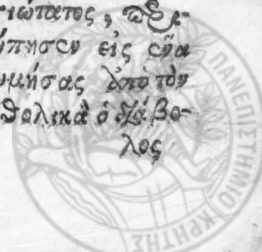 ιώτατος, περι-
ύπησεν εἰς ἕνα
υμήσας ἀπὸ τὸν
θολικὰ ὁ διάβο-
λος
ΠΑΝΕΠΙΣΤΗΜΙΟ ΚΡΗΤΗΣ